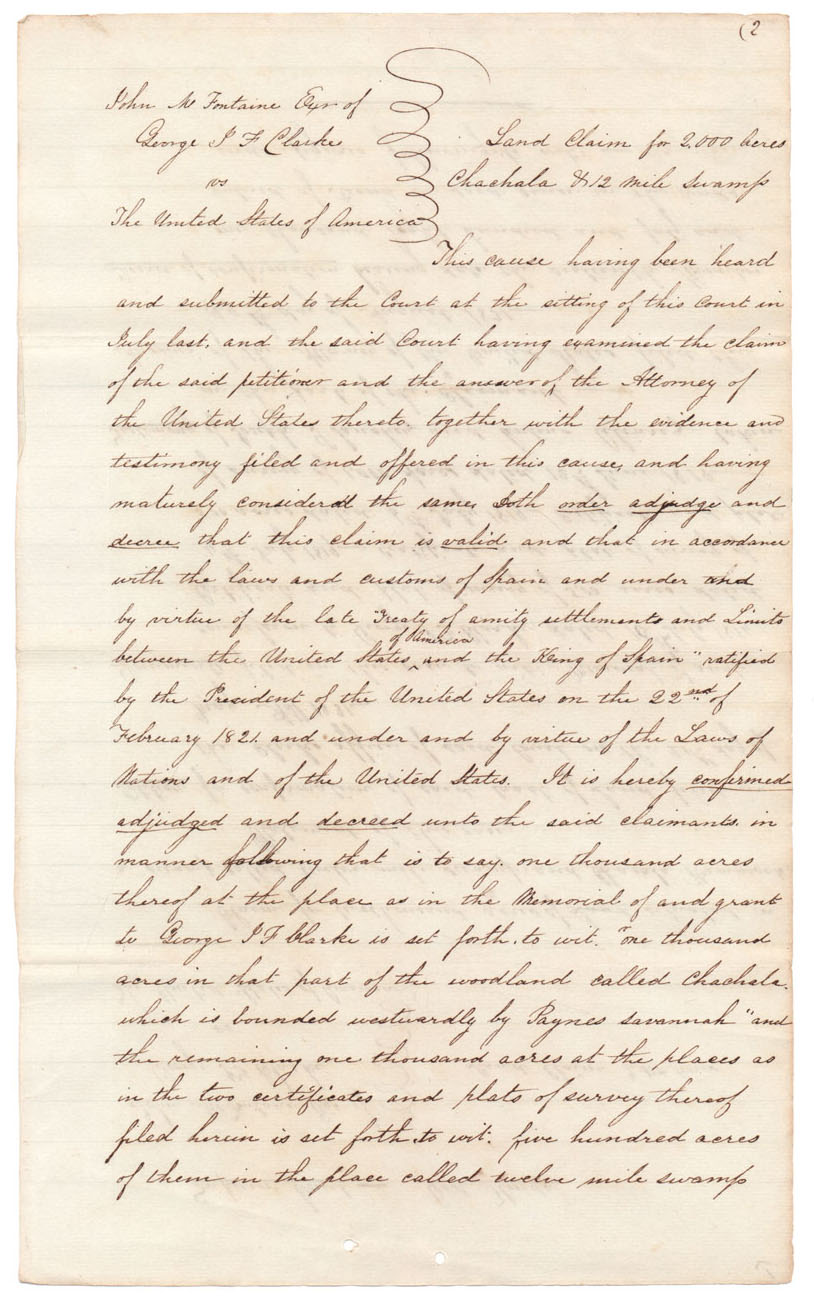 (2
John McFontaine Exr of
George J F Clarke
vs
The United States of America
Land Claim for 2,000 Acres
Chachala & 12 mile swamp
This cause having been heard
and submitted to the Court at the sitting of this Court in
July last, and the said Court having examined the claim
of the said petitioner and the answer of the Attorney of
the United States thereto, together with the evidence and
testimony filed and offered in this cause, and having
maturely considered the same, Doth order adjudge and
decree that this claim is valid and that in accordance
with the laws and customs of Spain and under and
by virtue of the late "Treaty of amity settlements and Limits
of America
between the United States and the King of Spain" ratified
by the President of the United States on the 22nd of
February 1821. and under and by virtue of the Laws of
Nations and of the United States. It is hereby confirmed
adjudged and decreed unto the said claimants, in
manner following that is to say, one thousand acres
thereof at the place as in the Memorial of and grant
to George J F Clarke is set forth, to wit, "one thousand
acres in that part of the woodland called Chachala,
which is bounded westwardly by Paynes savannah" and
the remaining one thousand acres at the places as
in the two certificates and plats of survey thereof
filed herein is set forth, to wit; five hundred acres
of them in the place called twelve mile swamp